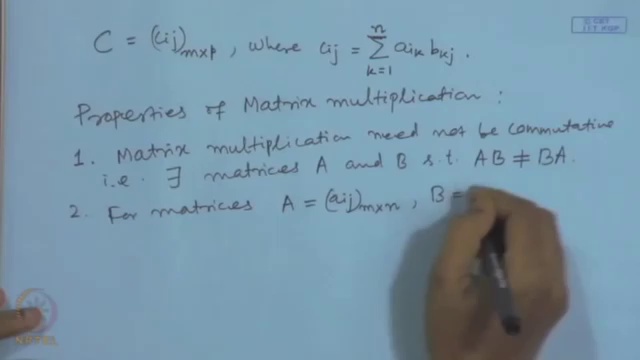 © CET
I.I.T. KGP
C = (cij)mxp , where cij = n∑k=1 aik bkj .
Properties of Matrix multiplication :
1. Matrix multiplication need not be commutative
i.e. ∃ matrices A and B s.t. AB ≠ BA.
2. For matrices A = (aij)mxn , B =
NPTEL